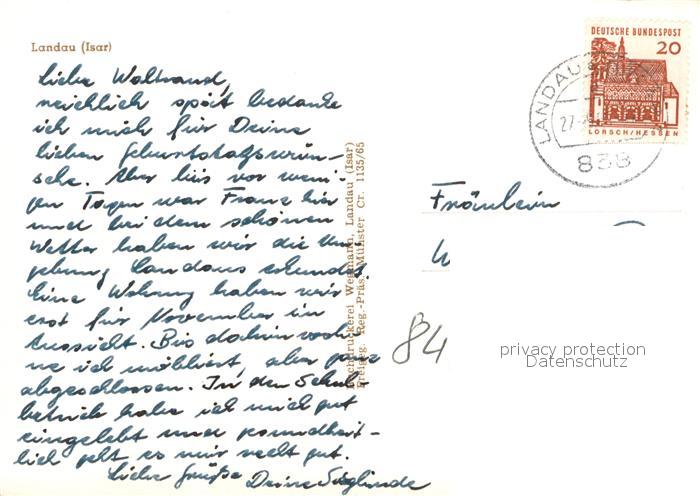 Landau (Isar)
Liebe Waltraud,
reichlich spät bedanke
ich mich für Deine
lieben Geburtstagswün-
sche. Aber bis vor weni-
gen Tagen war Franz hier
und bei dem schönen
Wetter haben wir die Um-
gebung Landaus erkundet.
Eine Wohnung haben wir
erst für November in
Aussicht. Bis dahin woh-
ne ich möbliert, aber ganz
abgeschlossen. In den Schul-
betrieb habe ich mich gut
eingelebt und gesundheit-
lich geht es mir recht gut.
Liebe Grüße Deine Sieglinde
Buchdruckerei Wegmann, Landau (Isar)
Freigeg. Reg.-Präs. Münster Cr. 1135/65
DEUTSCHE BUNDESPOST
20
LORSCH/HESSEN
LANDAU
27.
838
Fräulein
84
privacy protection
Datenschutz